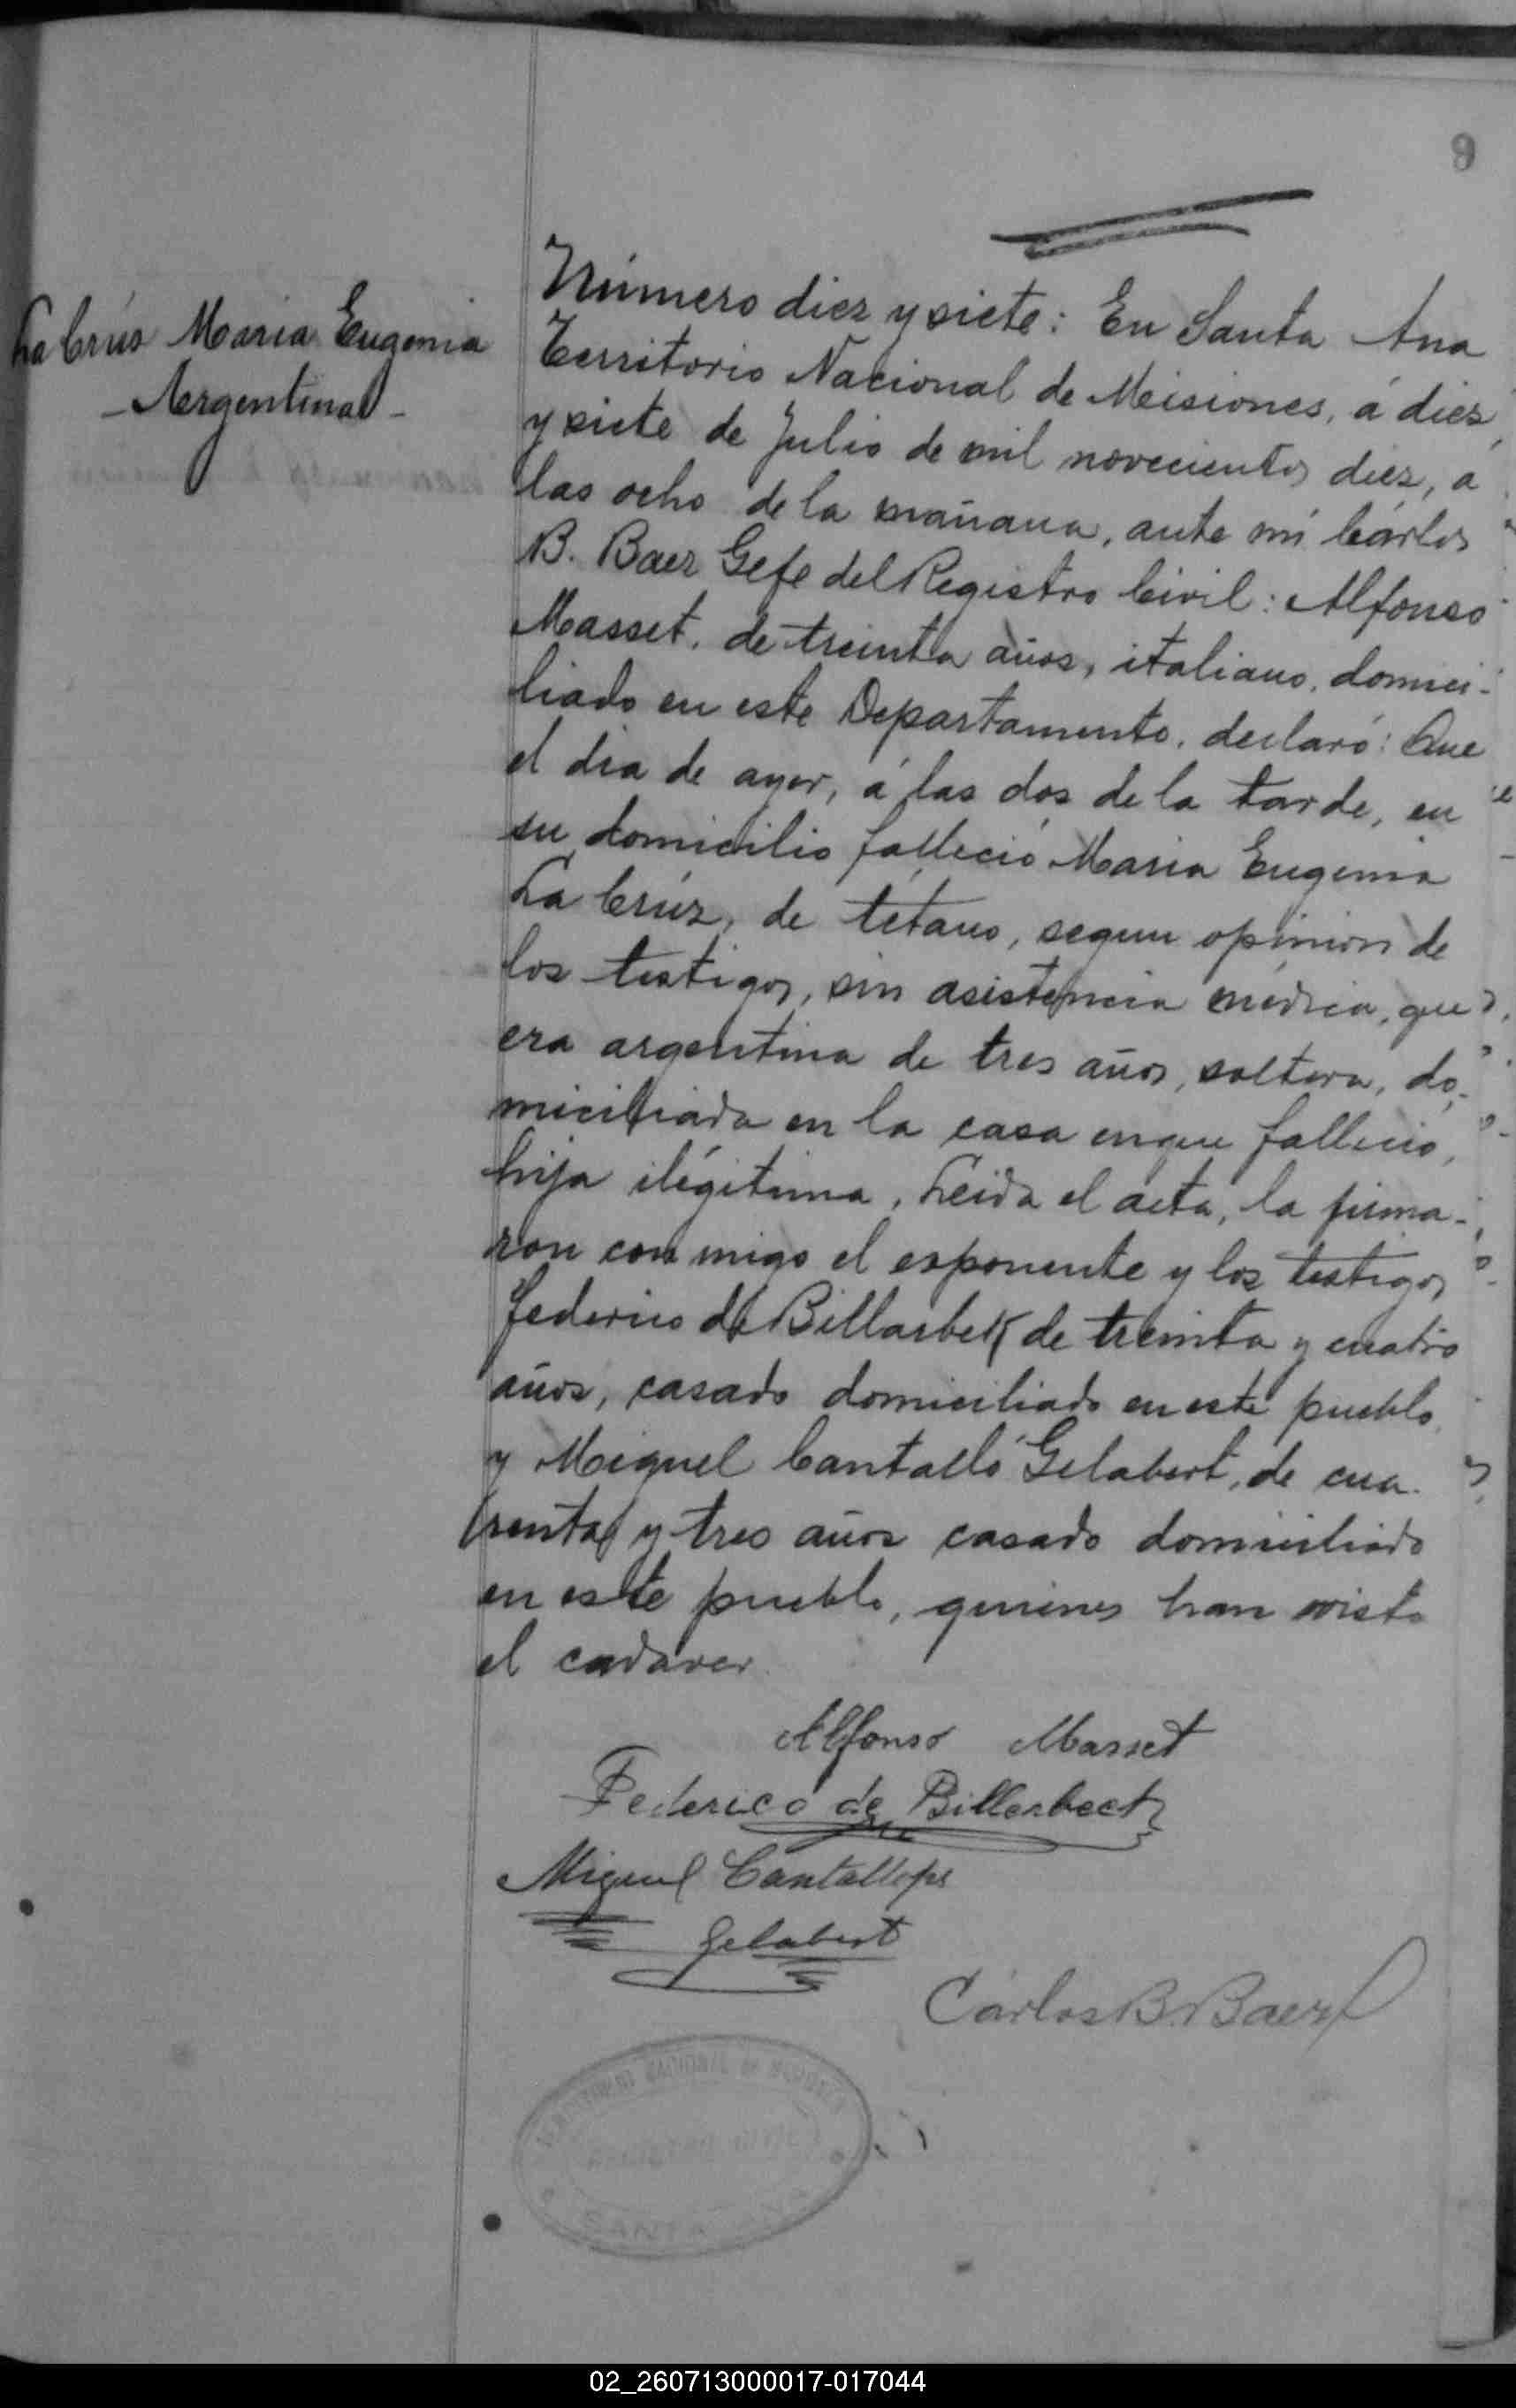 9
La Crús Maria Eugenia
- Argentina -
Número diez y siete: En Santa Ana
Territorio Nacional de Misiones, á diez
y siete de Julio de mil novecientos diez, á
las ocho de la mañana, ante mí Cárlos
B. Baez Gefe del Registro Civil: Alfonso
Masset, de treinta años, italiano, domici-
liado en este Departamento, declaró: Que
el dia de ayer, á las dos de la tarde, en
su domicilio falleció Maria Eugenia
La Crúz, de tétano, segun opinion de
los testigos, sin asistencia médica, que
era argentina de tres años, soltera, do-
miciliada en la casa en que fallecio,
hija ilégitima, Leida el acta, la firma-
ron con migo el esponente y los testigos
Federico de Billarbek de treinta y cuatro
años, casado domiciliado en este pueblo
y Miguel Cantalló Gelabert, de cua-
renta y tres años casado domiciliado
en este pueblo, quienes han visto
el cadaver
Alfonso Masset
Federico de Billerbeck
Miguel Cantallops
Gelabert
Cárlos B. Baez
SANTA
02_260713000017-017044